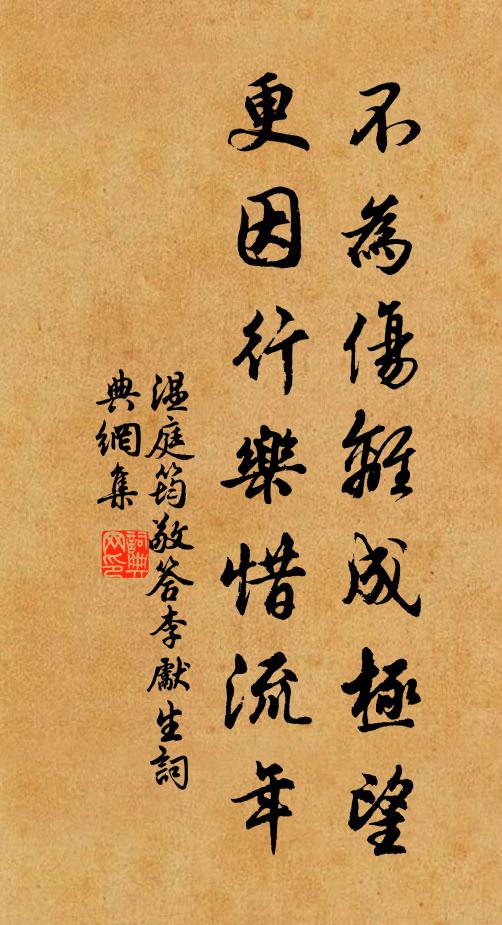 不為傷離成極望
更因行樂惜流年
温庭筠敬答李獻生詞
典網集
詞典網印